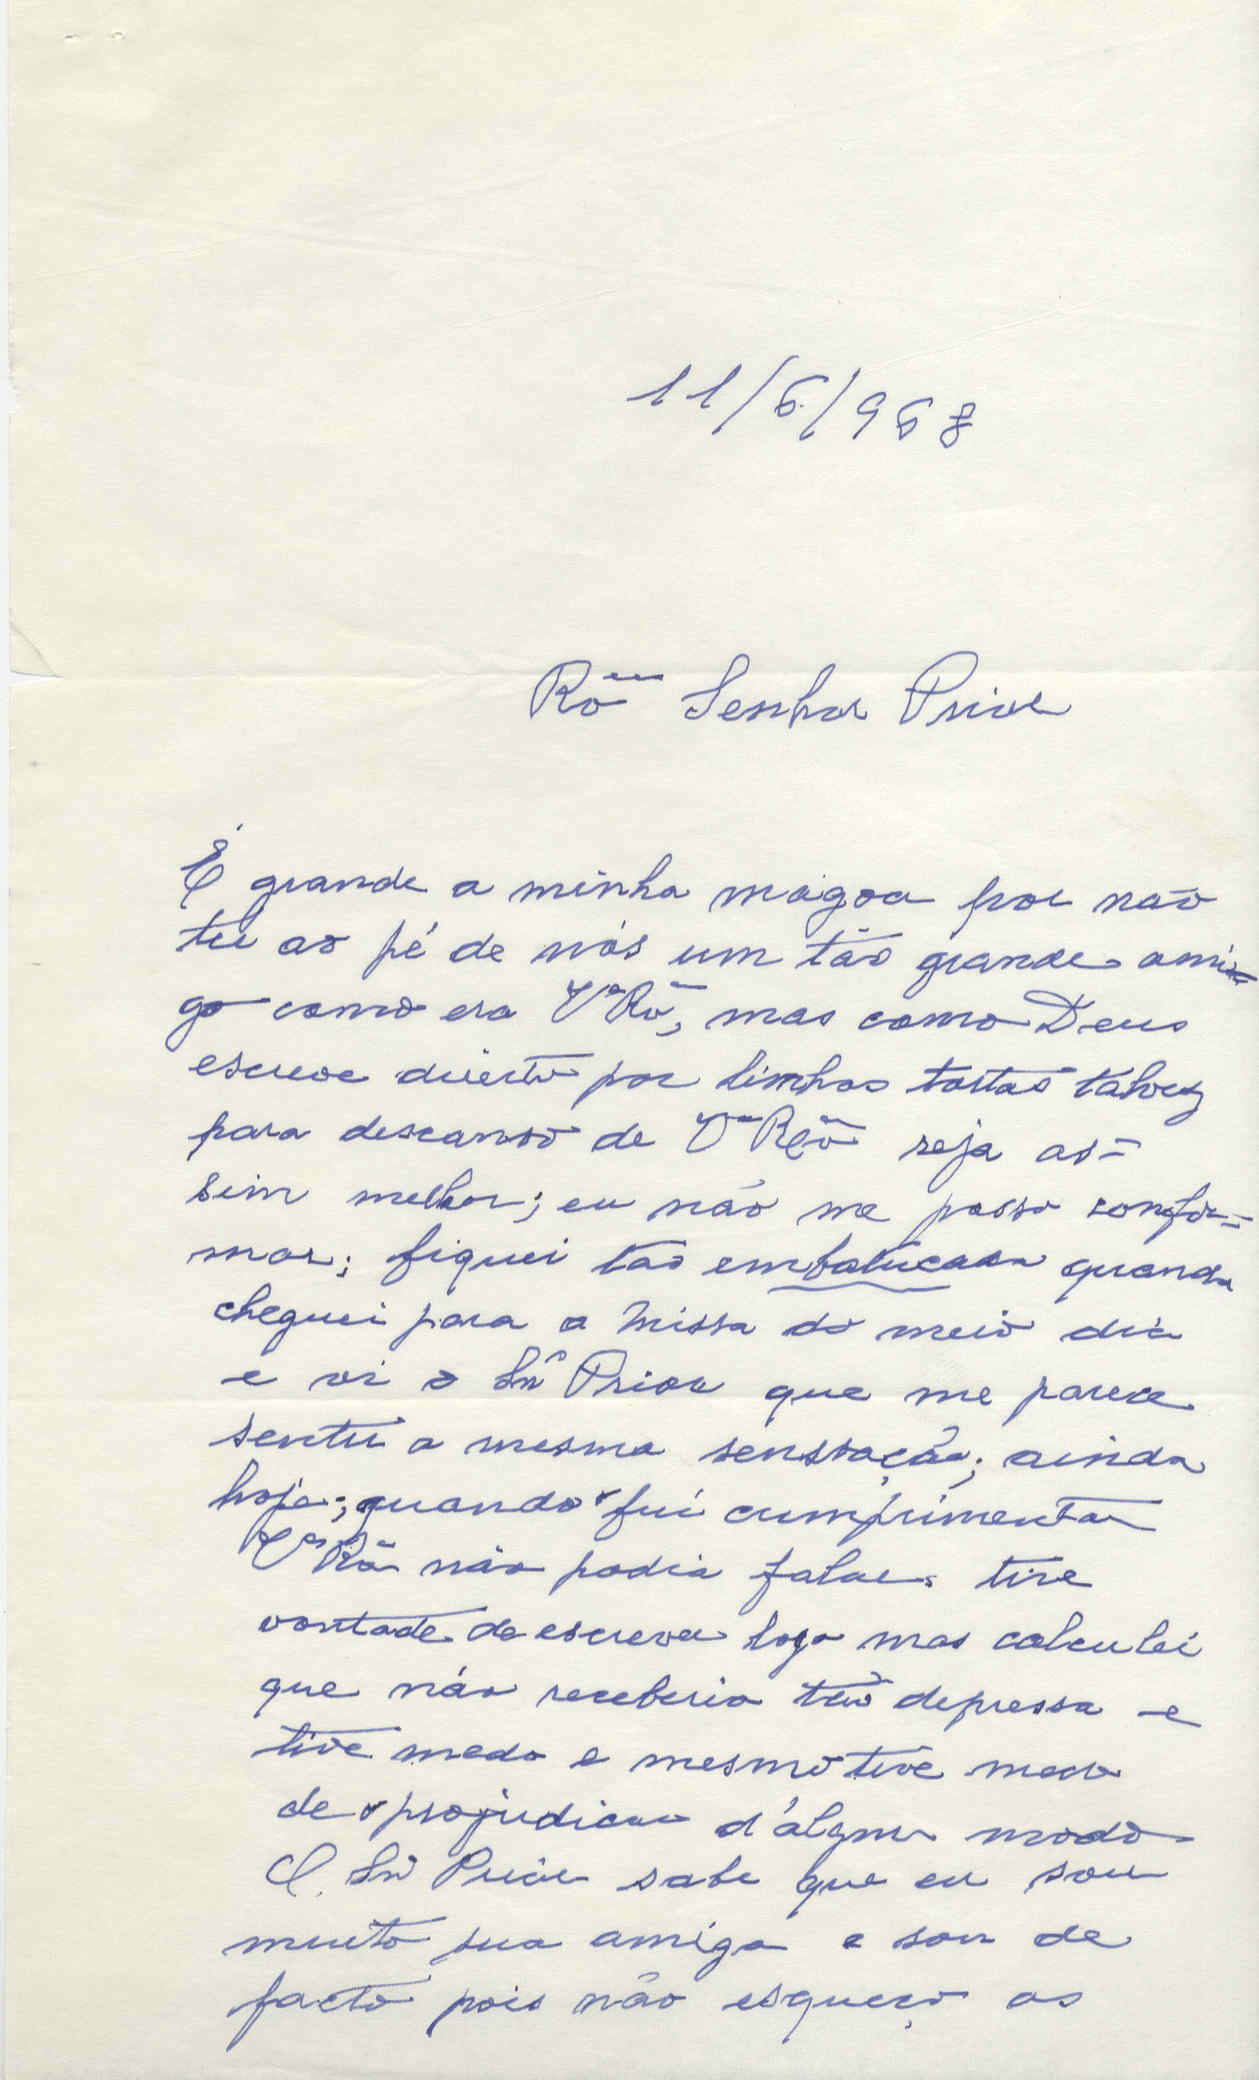 11/6/968
Rõ Senhor Prior
É grande a minha mágoa por não
ter ao pé de nós um tão grande ami-
go como era Vª Rõ, mas como Deus
escreve direito por linhas tortas talvez
para descanso de Vª Rẽo seja as=
sim melhor; eu não me posso confor=
mar; fiquei tão embatucada quando
cheguei para a Missa do meio dia
e vi o Snr Prior que me parece
sentiu a mesma sensação; ainda
hoje; quando fui cumprimentar
Vª Rõ não podia falar. tive
vontade de escrever logo mas calculei
que não receberia tão depressa e
tive medo e mesmo tive medo
de o projudicar d'algum modo
O. Snr Prior sabe que eu sou
muito sua amiga e sou de
facto pois não esqueço as